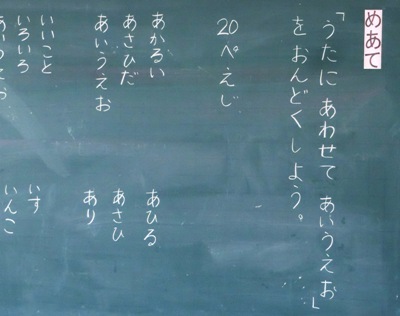 めあて
「うたに あわせて あいうえお」
を おんどくしよう。
20ぺえじ
あかるい
あさひだ
あいうえお
いいこと
いろいろ
あいうえお
あひる
あさひ
あり
いす
いんこ